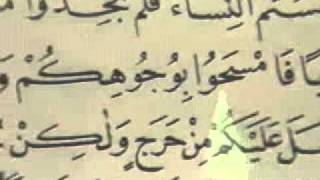 ـسْتُمُ النِّسَاءَ فَلَمْ تَجِدُوا مَـ
ـبًا فَامْسَحُوا بِوُجُوهِكُمْ وَ
ـعَلَ عَلَيْكُمْ مِنْ حَرَجٍ وَلَكِنْ